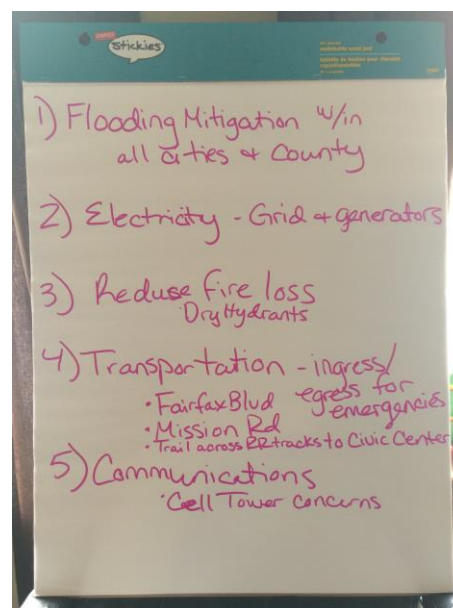 Stickies
1) Flooding Mitigation w/in
all cities & County
2) Electricity - Grid & generators
3) Reduse fire loss
Dry Hydrants
4) Transportation - ingress/
egress for
emergencies
• Fairfax Blvd
• Mission Rd
• Trail across RR tracks to Civic Center
5) Communications
• Cell Tower concerns